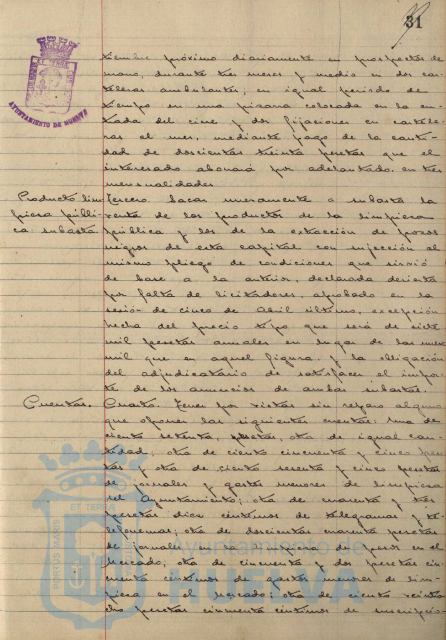 31
AYUNTAMIENTO DE HUELVA
tiembre próximo diariamente en prospectos de
mano, durante tres meses y medio en dos car-
teleras ambulantes; en igual período de
tiempo en una pizarra colocada en la en-
trada del cine y dos fijaciones en cartele-
ras al mes, mediante pago de la canti-
dad de doscientas treinta pesetas que el
interesado abonará por adelantado en tres
mensualidades
Producto lim-
pieza públi-
ca: subasta
Tercero. Sacar nuevamente a subasta la
venta de los productos de la limpieza
pública y los de la extracción de pozos
negros de esta capital con sujeción al
mismo pliego de condiciones que sirvió
de base a la anterior, declarada desierta
por falta de licitadores, aprobado en la
sesión de cinco de Abril último, excepción
hecha del precio tipo que será de siete
mil pesetas anuales en lugar de las nueve
mil que en aquel figura, y la obligación
del adjudicatario de satisfacer el impor-
te de los anuncios de ambas subastas.
Cuentas.
Cuarto. Tener por vistas sin reparo alguno
que oponer las siguientes cuentas: una de
ciento setenta pesetas, otra de igual can-
tidad, otra de ciento cincuenta y cinco pese-
tas y otra de ciento sesenta y cinco pesetas
de jornales y gastos menores de limpieza
del Ayuntamiento; otra de cuarenta y tres
pesetas diez céntimos de telegramas y te-
lefonemas; otra de doscientas noventa pesetas
de jornales en la limpieza de pesos en el
Mercado; otra de cincuenta y dos pesetas cin-
cuenta céntimos de gastos menores de lim-
pieza en el Mercado; otra de ciento veinte
dos pesetas cincuenta céntimos de suscripcio-
Ayuntamiento de
HUELVA
PORTUS MARIS
ET TERRAE